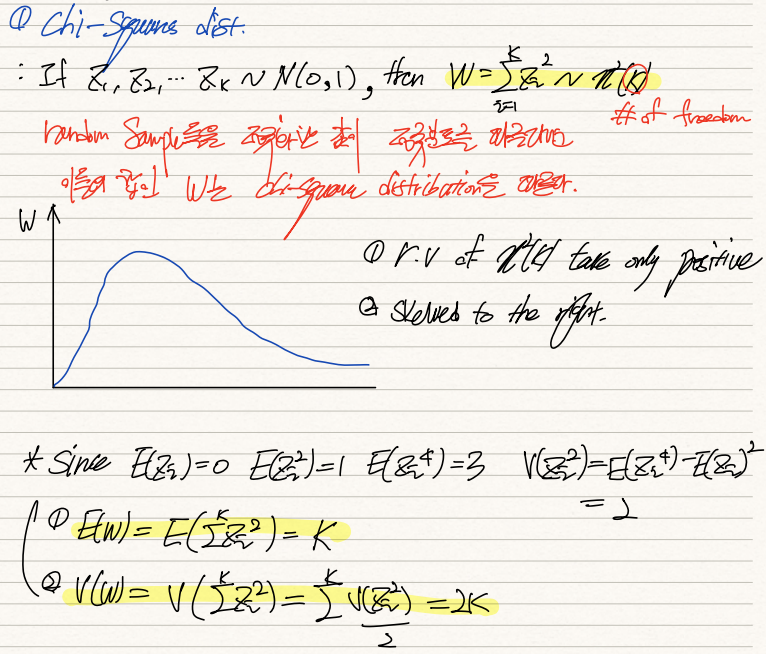 ① Chi-Squares dist.
: If Z₁, Z₂, ... Zₖ ~ N(0,1), then W = Σᵢ₌₁ᴷ Zᵢ² ~ χ²(K)
# of freedom
random Sample들을
이들의 합인 W는 chi-square distribution을 따른다.
W
① r.v of χ²(K) take only positive
② skewed to the right.
* Since E(Zᵢ)=0 E(Zᵢ²)=1 E(Zᵢ⁴)=3 V(Zᵢ²)=E(Zᵢ⁴)-E(Zᵢ)²
= 2
① E(W) = E(Σᴷ Zᵢ²) = K
② V(W) = V(Σᴷ Zᵢ²) = Σᴷ V(Zᵢ²) = 2K
2